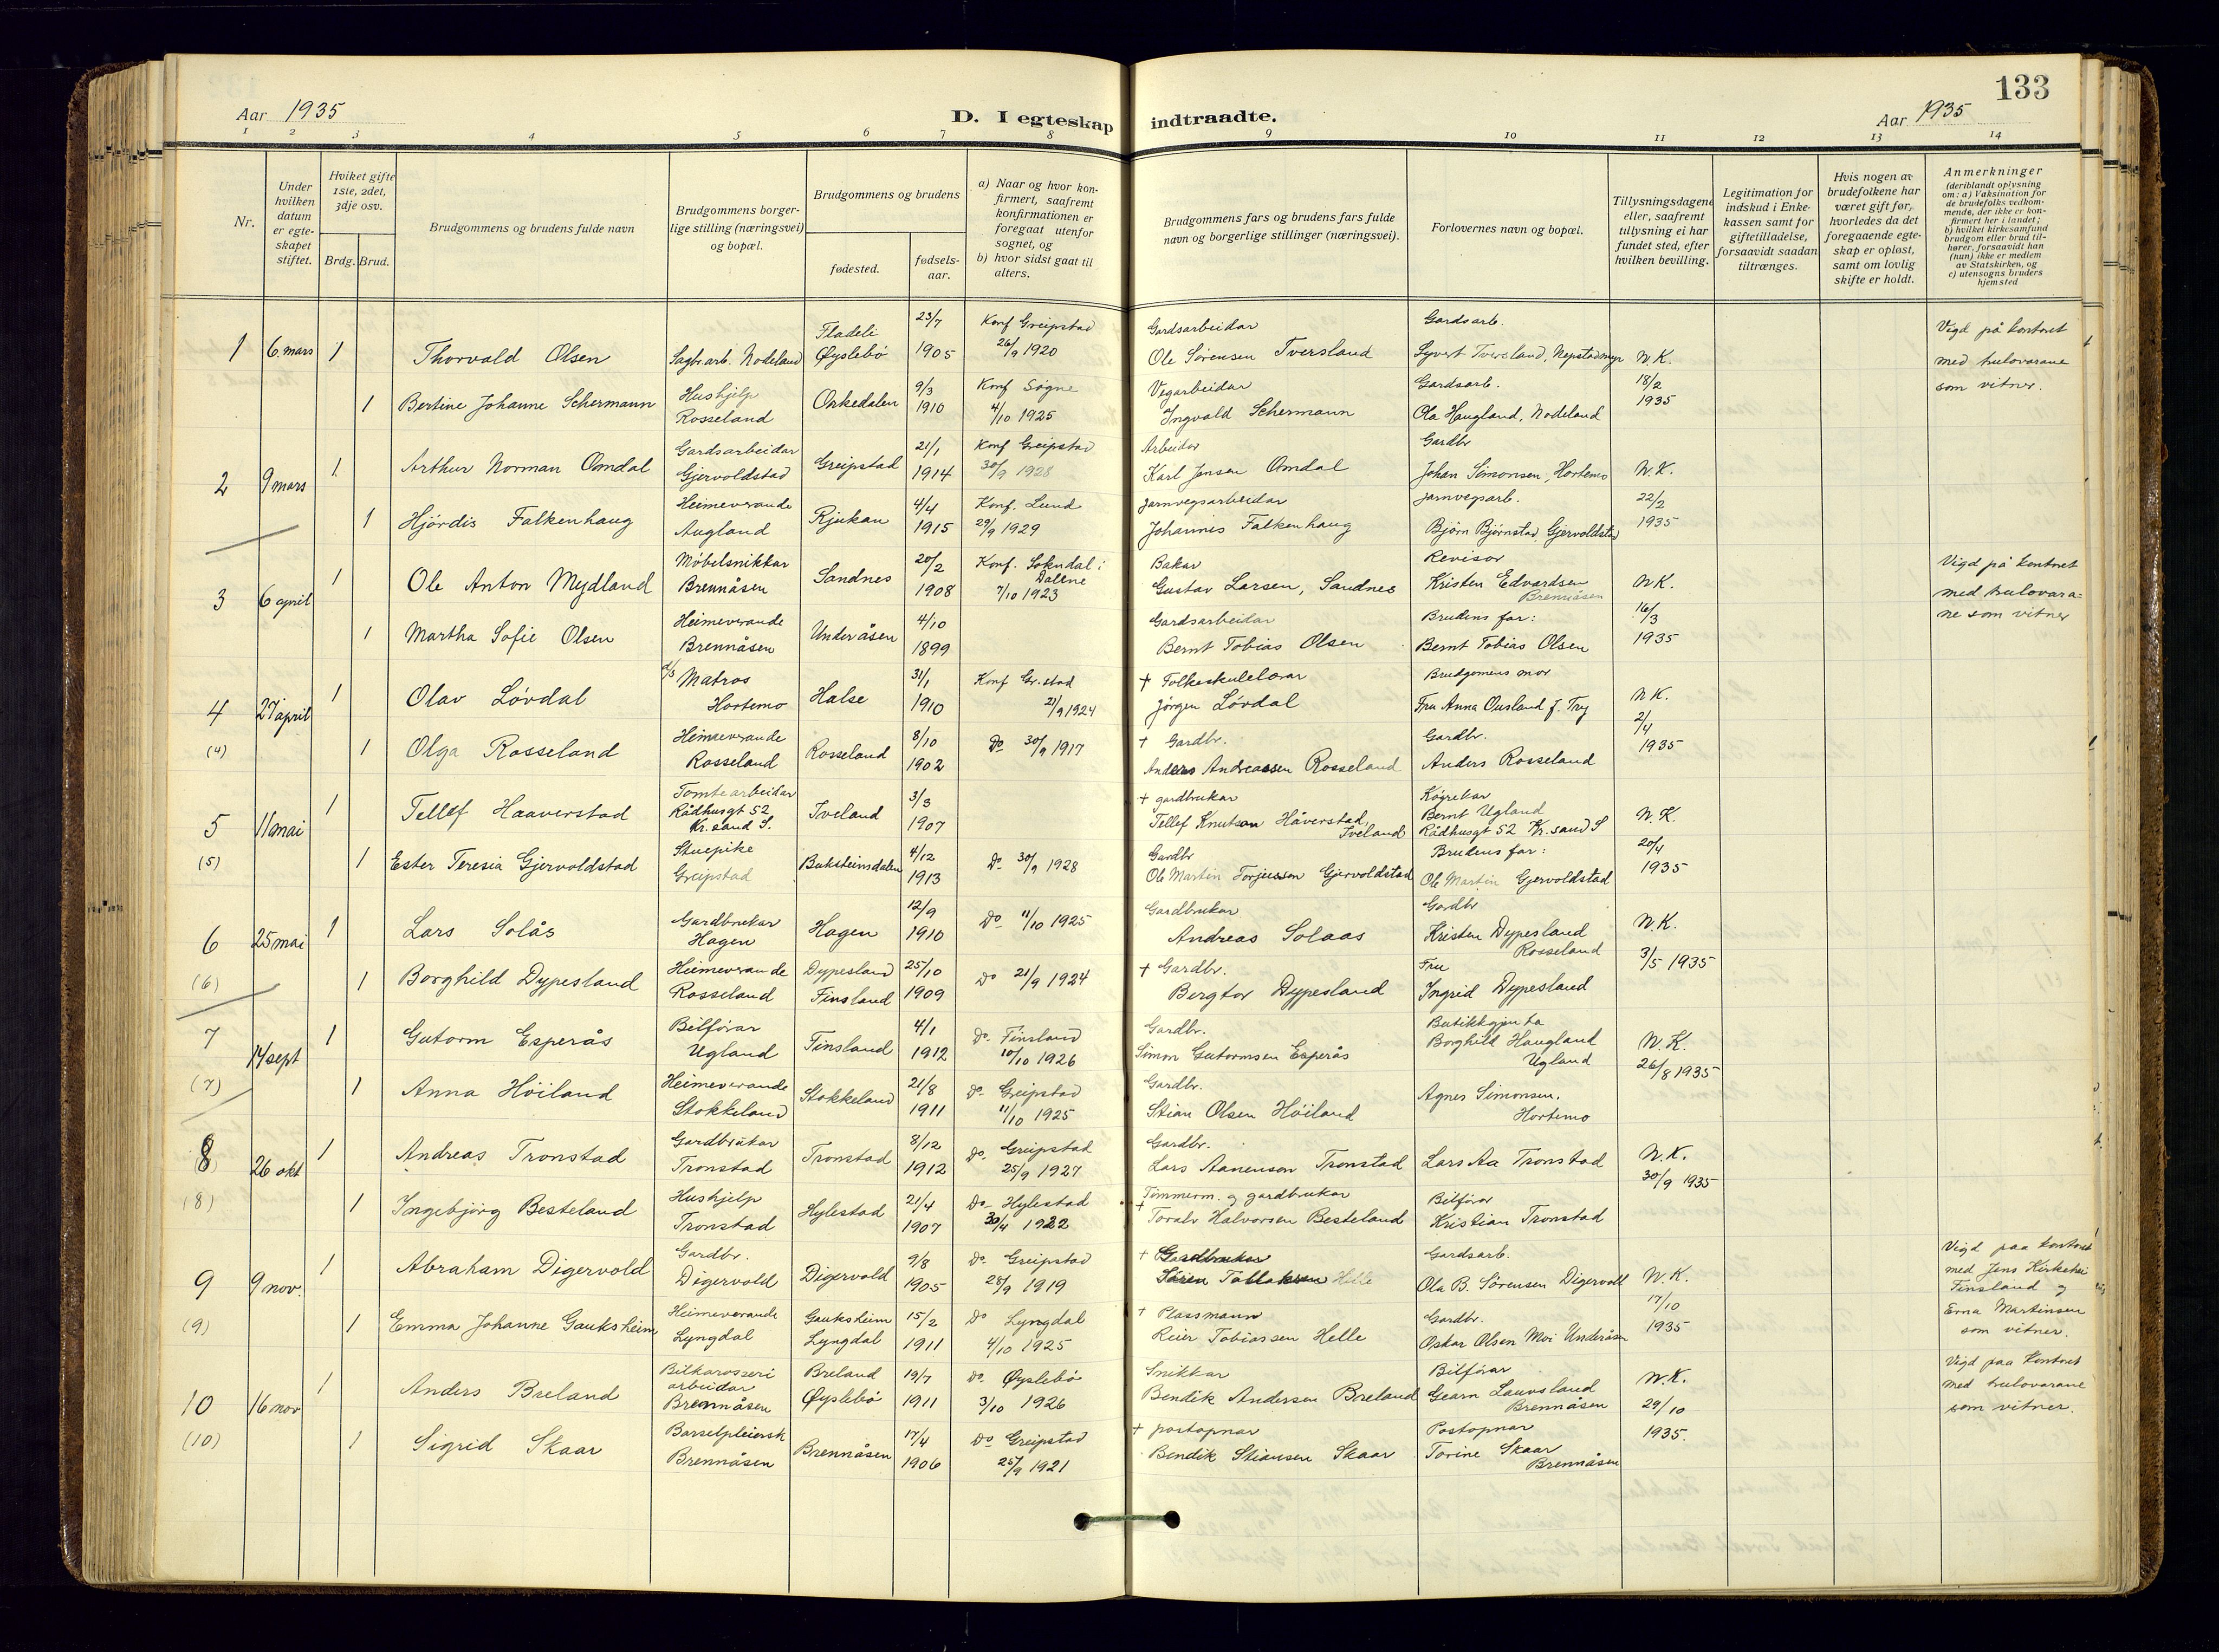 133
Aar 1935
D. I egteskap indtraadte.
Aar 1935
1 2 3 4 5 6 7 8 9 10 11 12 13 14
Nr.
Under hvilken datum er egteskapet stiftet.
Hvilket gifte 1ste, 2det, 3dje osv.
Brdg. Brud.
Brudgommens og brudens fulde navn
Brudgommens borgerlige stilling (næringsvei) og bopæl.
Brudgommens og brudens
fødested.
fødsels-aar.
a) Naar og hvor konfirmert, saafremt konfirmationen er foregaat utenfor sognet, og
b) hvor sidst gaat til alters.
Brudgommens fars og brudens fars fulde navn og borgerlige stillinger (næringsvei).
Forlovernes navn og bopæl.
Tillysningsdagene eller, saafremt tillysning ei har fundet sted, efter hvilken bevilling.
Legitimation for indskud i Enkekassen samt for giftetilladelse, forsaavidt saadan tiltrænges.
Hvis nogen av brudefolkene har været gift før, hvorledes da det foregaaende egteskap er opløst, samt om lovlig skifte er holdt.
Anmerkninger
(deriblandt oplysning om: a) Vaksination for de brudefolks vedkommende, der ikke er konfirmert her i landet; b) hvilket kirkesamfund brudgom eller brud tilhører, forsaavidt han (hun) ikke er medlem av Statskirken, og c) utensogns bruders hjemsted
1 6. mars 1 Thorvald Olsen Sagbr.arb. Nodeland Fladeli Øyslebö 23/7 1905 Konf Greipstad 26/9 1920 Gardsarbeidar Ole Sørensen Tversland Gardsarb. Syvert Tversland, Nepstadmyr N.K. 18/2 1935 Vigd på kontoret med trulovarane som vitner.
1 Bertine Johanne Schermann Hushjelp Rosseland Orkedalen 9/3 1910 Konf Søgne 4/10 1925 Vegarbeidar Ingvald Schermann Gardsarb. Ola Haugland, Nodeland
2 9 mars 1 Arthur Norman Omdal Gardsarbeidar Gjervoldstad Greipstad 21/1 1914 Konf Greipstad 30/9 1928 Arbeidar Karl Jensen Omdal Gardbr Johan Simonsen, Hortemo N.K. 22/2 1935
1 Hjördis Falkenhaug Heimeverande Augland Rjukan 4/4 1915 Konf. Lund 29/9 1929 Jarnvegsarbeidar Johannes Falkenhaug Jarnvegsarb. Bjørn Bjørnstad, Gjervoldstad
3 6 april 1 Ole Anton Mydland Möbelsnikkar Brennåsen Sandnes 20/2 1908 Konf. Sokndal i Dalene 7/10 1923 Bakar Gustav Larsen, Sandnes Revisor Kristen Edvardsen Brennåsen N.K. 16/3 1935 Vigd på kontoret med trulovarane som vitner
1 Martha Sofie Olsen Heimeverande Brennåsen Underåsen 4/10 1899 Gardsarbeidar Bernt Tobias Olsen Brudens far: Bernt Tobias Olsen
4 27 april 1 Olav Lövdal Matros Hortemo Halse 31/1 1910 Konf Gr.stad 21/9 1924 † Folkeskulelærar Jörgen Lövdal Brudgomens mor Fru Anna Ousland f. Try N.K. 2/4 1935
(4) 1 Olga Rosseland Heimeverande Rosseland Rosseland 8/10 1902 Do 30/9 1917 † Gardbr. Anders Andreassen Rosseland Gardbr. Anders Rosseland
5 11 mai 1 Tellef Haaverstad Tomtearbeidar Rådhusgt 52 Kr.sand S. Iveland 3/3 1907 † gardbrukar Tellef Knutson Håverstad, Iveland Köyrekar Bernt Ugland Rådhusgt 52 Kr.sand S N.K. 20/4 1935
(5) 1 Ester Teresia Gjervoldstad Stuepike Greipstad Buksteinsdalen 4/12 1913 Do 30/9 1928 Gardbr Ole Martin Torjussen Gjervoldstad Brudens far: Ole Martin Gjervoldstad
6 25 mai 1 Lars Solås Gardbrukar Hagen Hagen 12/9 1910 Do 11/10 1925 Gardbrukar Andreas Solaas Gardbr Kristen Dypesland Rosseland N.K. 3/5 1935
(6) 1 Borghild Dypesland Heimeverande Rosseland Dypesland Finsland 25/10 1909 Do 21/9 1924 † Gardbr. Bergtor Dypesland Fru Ingrid Dypesland
7 14 sept 1 Gutorm Esperås Bilförar Ugland Finsland 4/1 1912 Do. Finsland 10/10 1926 Gardbr. Simon Gutormsen Esperås Butikkgjenta Borghild Haugland Ugland N.K. 26/8 1935
(7) 1 Anna Höiland Heimeverande Stokkeland Stokkeland 21/8 1911 Do Greipstad 11/10 1925 Gardbr. Stian Olsen Höiland Agnes Simonsen, Hortemo
8 26 okt 1 Andreas Tronstad Gardbrukar Tronstad Tronstad 8/12 1912 Do. Greipstad 25/9 1927 Gardbr. Lars Aanenson Tronstad Lars Aa Tronstad N.K. 30/9 1935
(8) 1 Ingebjörg Besteland Hushjelp Tronstad Hylestad 21/4 1907 Do Hylestad 30/4 1922 Tömmerm. og gardbrukar † Toralv Halvorsen Besteland Bilförar Kristian Tronstad
9 9 nov. 1 Abraham Digervold Gardbr. Digervold Digervold 9/8 1905 Do. Greipstad 28/9 1919 † Gardbrukar Sören Tallaksen Helle Gardsarb. Ola B. Sørensen Digervoll N.K. 17/10 1935 Vigd paa kontoret med Jens Finsland og Erna Martinsen som vitner.
(9) 1 Emma Johanne Gauksheim Heimeverande Lyngdal Gauksheim Lyngdal 15/2 1911 Do Lyngdal 4/10 1925 † Plassmann Reier Tobiassen Helle Gardbr. Oskar Olsen Moi Underåsen
10 16 nov 1 Anders Breland Bilkarosseri arbeidar Brennåsen Breland Øyslebö 19/7 1911 Do. Øyslebö 3/10 1926 Snikkar Bendik Andersen Breland Bilförar Gearn Lauvsland Brennåsen N.K. 29/10 1935. Vigd paa kontoret med trulovarane som vitner.
(10) 1 Sigrid Skaar Barselpleiersk Brennåsen Brennåsen 17/4 1906 Do Greipstad 25/9 1921 † postopnar Bendik Stiansen Skaar Postopnar Torine Skaar Brennåsen